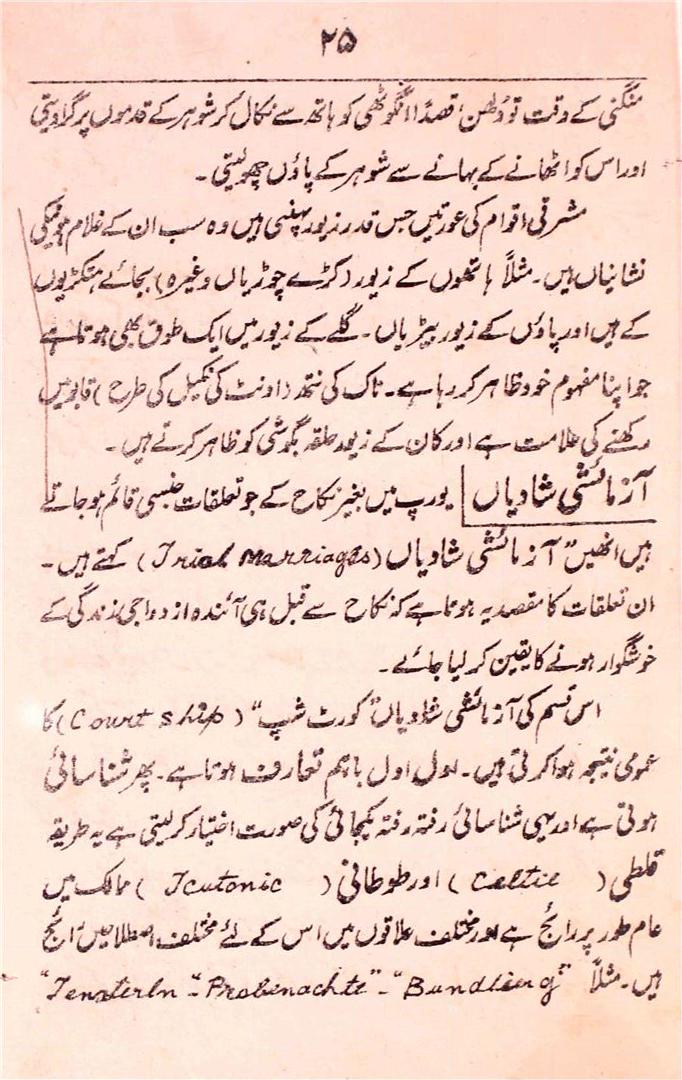 ۲۵
منگنی کے وقت تو دُلھن، قصداً انگوٹھی کو ہاتھ سے نکال کر شوہر کے قدموں پر گرا دیتی
اور اس کو اٹھانے کے بہانے سے شوہر کے پاؤں چھو لیتی۔
مشرقی اقوام کی عورتیں جس قدر زیور پہنتی ہیں وہ سب ان کے غلام ہونیکی
نشانیاں ہیں۔ مثلاً ہاتھوں کے زیور (کڑے چوڑیاں وغیرہ) بجائے ہتکڑیوں
کے ہیں اور پاؤں کے زیور بیڑیاں۔ گلے کے زیور میں ایک طوق بھی ہوتا ہے
جو اپنا مفہوم خود ظاہر کر رہا ہے۔ ناک کی نتھ (اونٹ کی نکیل کی طرح) قابو میں
رکھنے کی علامت ہے اور کان کے زیور حلقہ بگوشی کو ظاہر کرتے ہیں۔
آزمائشی شادیاں یورپ میں بغیر نکاح کے جو تعلقات جنسی قائم ہو جاتے
ہیں انھیں "آزمائشی شادیاں (Trial Marriages) کہتے ہیں۔
ان تعلقات کا مقصد یہ ہوتا ہے کہ نکاح سے قبل ہی آئندہ ازدواجی زندگی کے
خوشگوار ہونے کا یقین کر لیا جائے۔
اس قسم کی آزمائشی شادیاں "کورٹ شپ" (Court ship) کا
عمومی نتیجہ ہوا کرتی ہیں۔ اول اول باہم تعارف ہوتا ہے۔ پھر شناسائی
ہوتی ہے اور یہی شناسائی رفتہ رفتہ یکجائی کی صورت اختیار کر لیتی ہے یہ طریقہ
قلطی (Celtic) اور طوطانی (Teutonic) ممالک میں
عام طور پر رائج ہے اور مختلف علاقوں میں اس کے لئے مختلف اصطلاحیں رائج
ہیں۔ مثلاً "Bundling" - "Probenachte" -